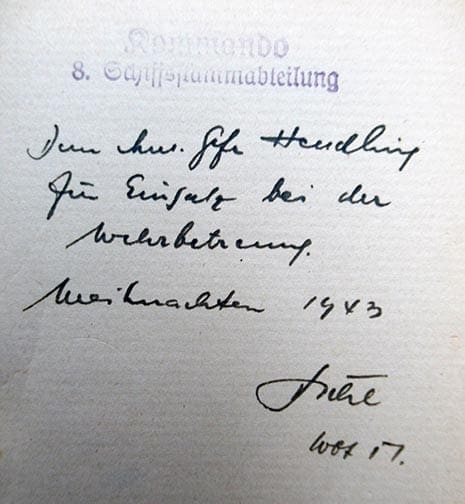 Kommando
8. Schiffsstammabteilung
Dem Gefr Hendling
für Einsatz bei der
Wehrbetreuung.
Weihnachten 1943